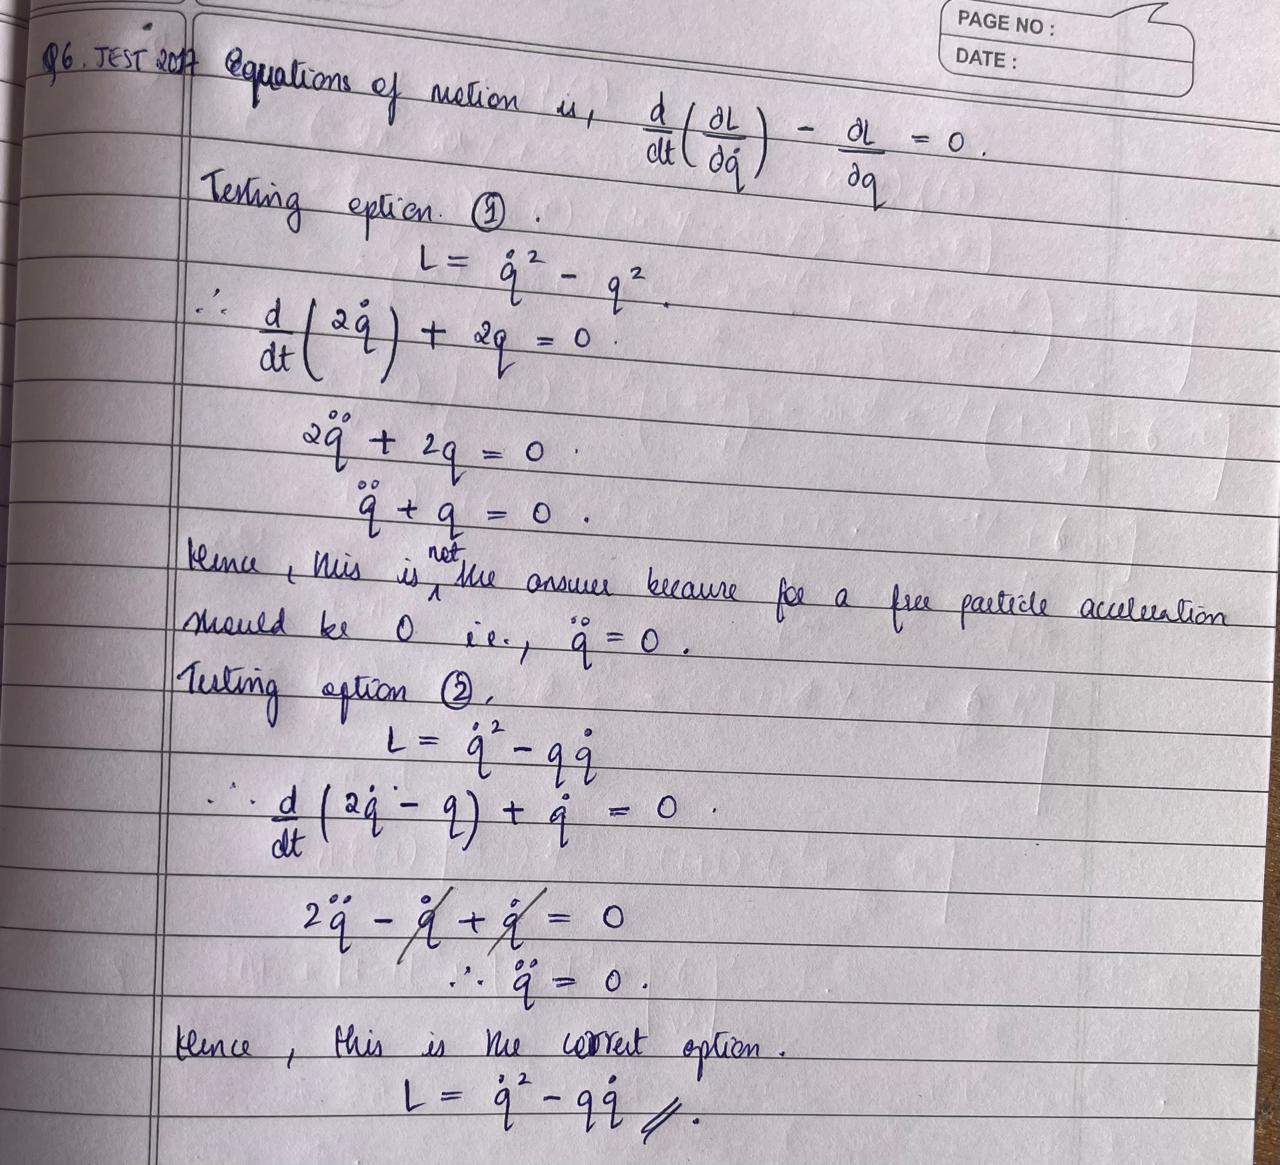 PAGE NO :
DATE :
Q6. JEST 2017 Equations of motion is, d/dt (∂L/∂q̇) - ∂L/∂q = 0.
Testing option. ①.
L = q̇² - q².
∴ d/dt (2q̇) + 2q = 0.
2q̈ + 2q = 0.
q̈ + q = 0.
Hence, this is not the answer because for a free particle acceleration
should be 0 i.e., q̈ = 0.
Testing option ②.
L = q̇² - qq̇
∴ d/dt (2q̇ - q) + q̇ = 0.
2q̈ - q̇ + q̇ = 0
∴ q̈ = 0.
Hence, this is the correct option.
L = q̇² - qq̇ //.